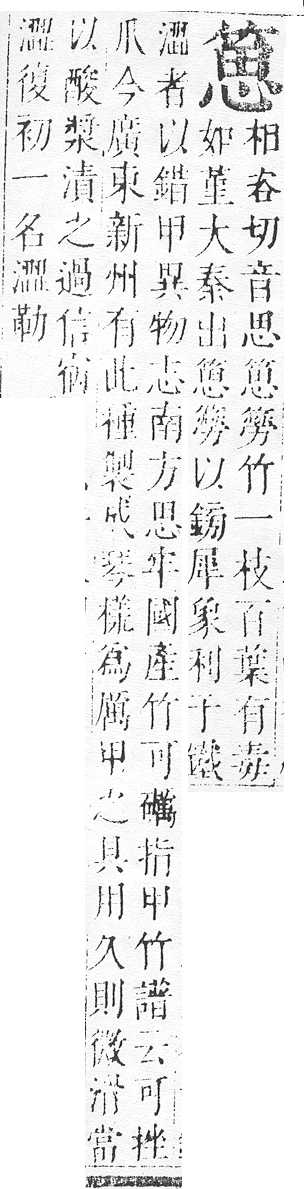 䈡
相咨切音思䈡簩竹一枝百葉有毒
如堇大秦出䈡簩以鎊犀象利于鐵
澀者以錯甲異物志南方思牢國產竹可礪指甲竹譜云可挫
爪今廣東新州有此種製成琴樣爲厲甲之具用久則微滑當
以酸漿漬之過信宿
澀復初一名澀勒